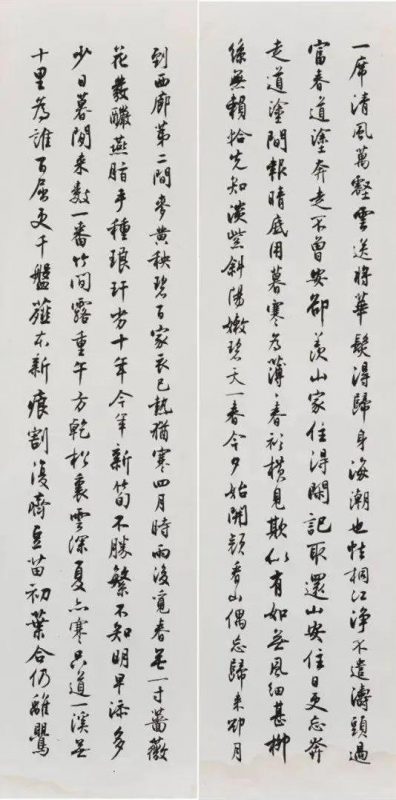 一席清風萬壑雲送將華髮得歸身海潮也怯桐江淨不遣濤頭過
富春道塗奔走不曾安卻羨山家住得閑記取還山安住日更忘奔
走道塗間報晴底用暮寒為薄薄春衫橫見欺似有如無風細甚柳
絲無賴拾先知淡紫斜陽嫩碧天一春今夕始開顏看山偶忘歸來卻月
到西廊第二間麥黃秧碧百家衣已熱猶寒四月時雨後覓春無一寸薔薇
花叢釅燕脂手種琅玕劣十年今年新筍不勝繁不知明早添多
少日暮閑來數一番竹間露重午方乾松裏雲深夏亦寒只道一溪無
十里為誰百屈更千盤薤本新痕割復齊豆苗初葉合仍離鸎